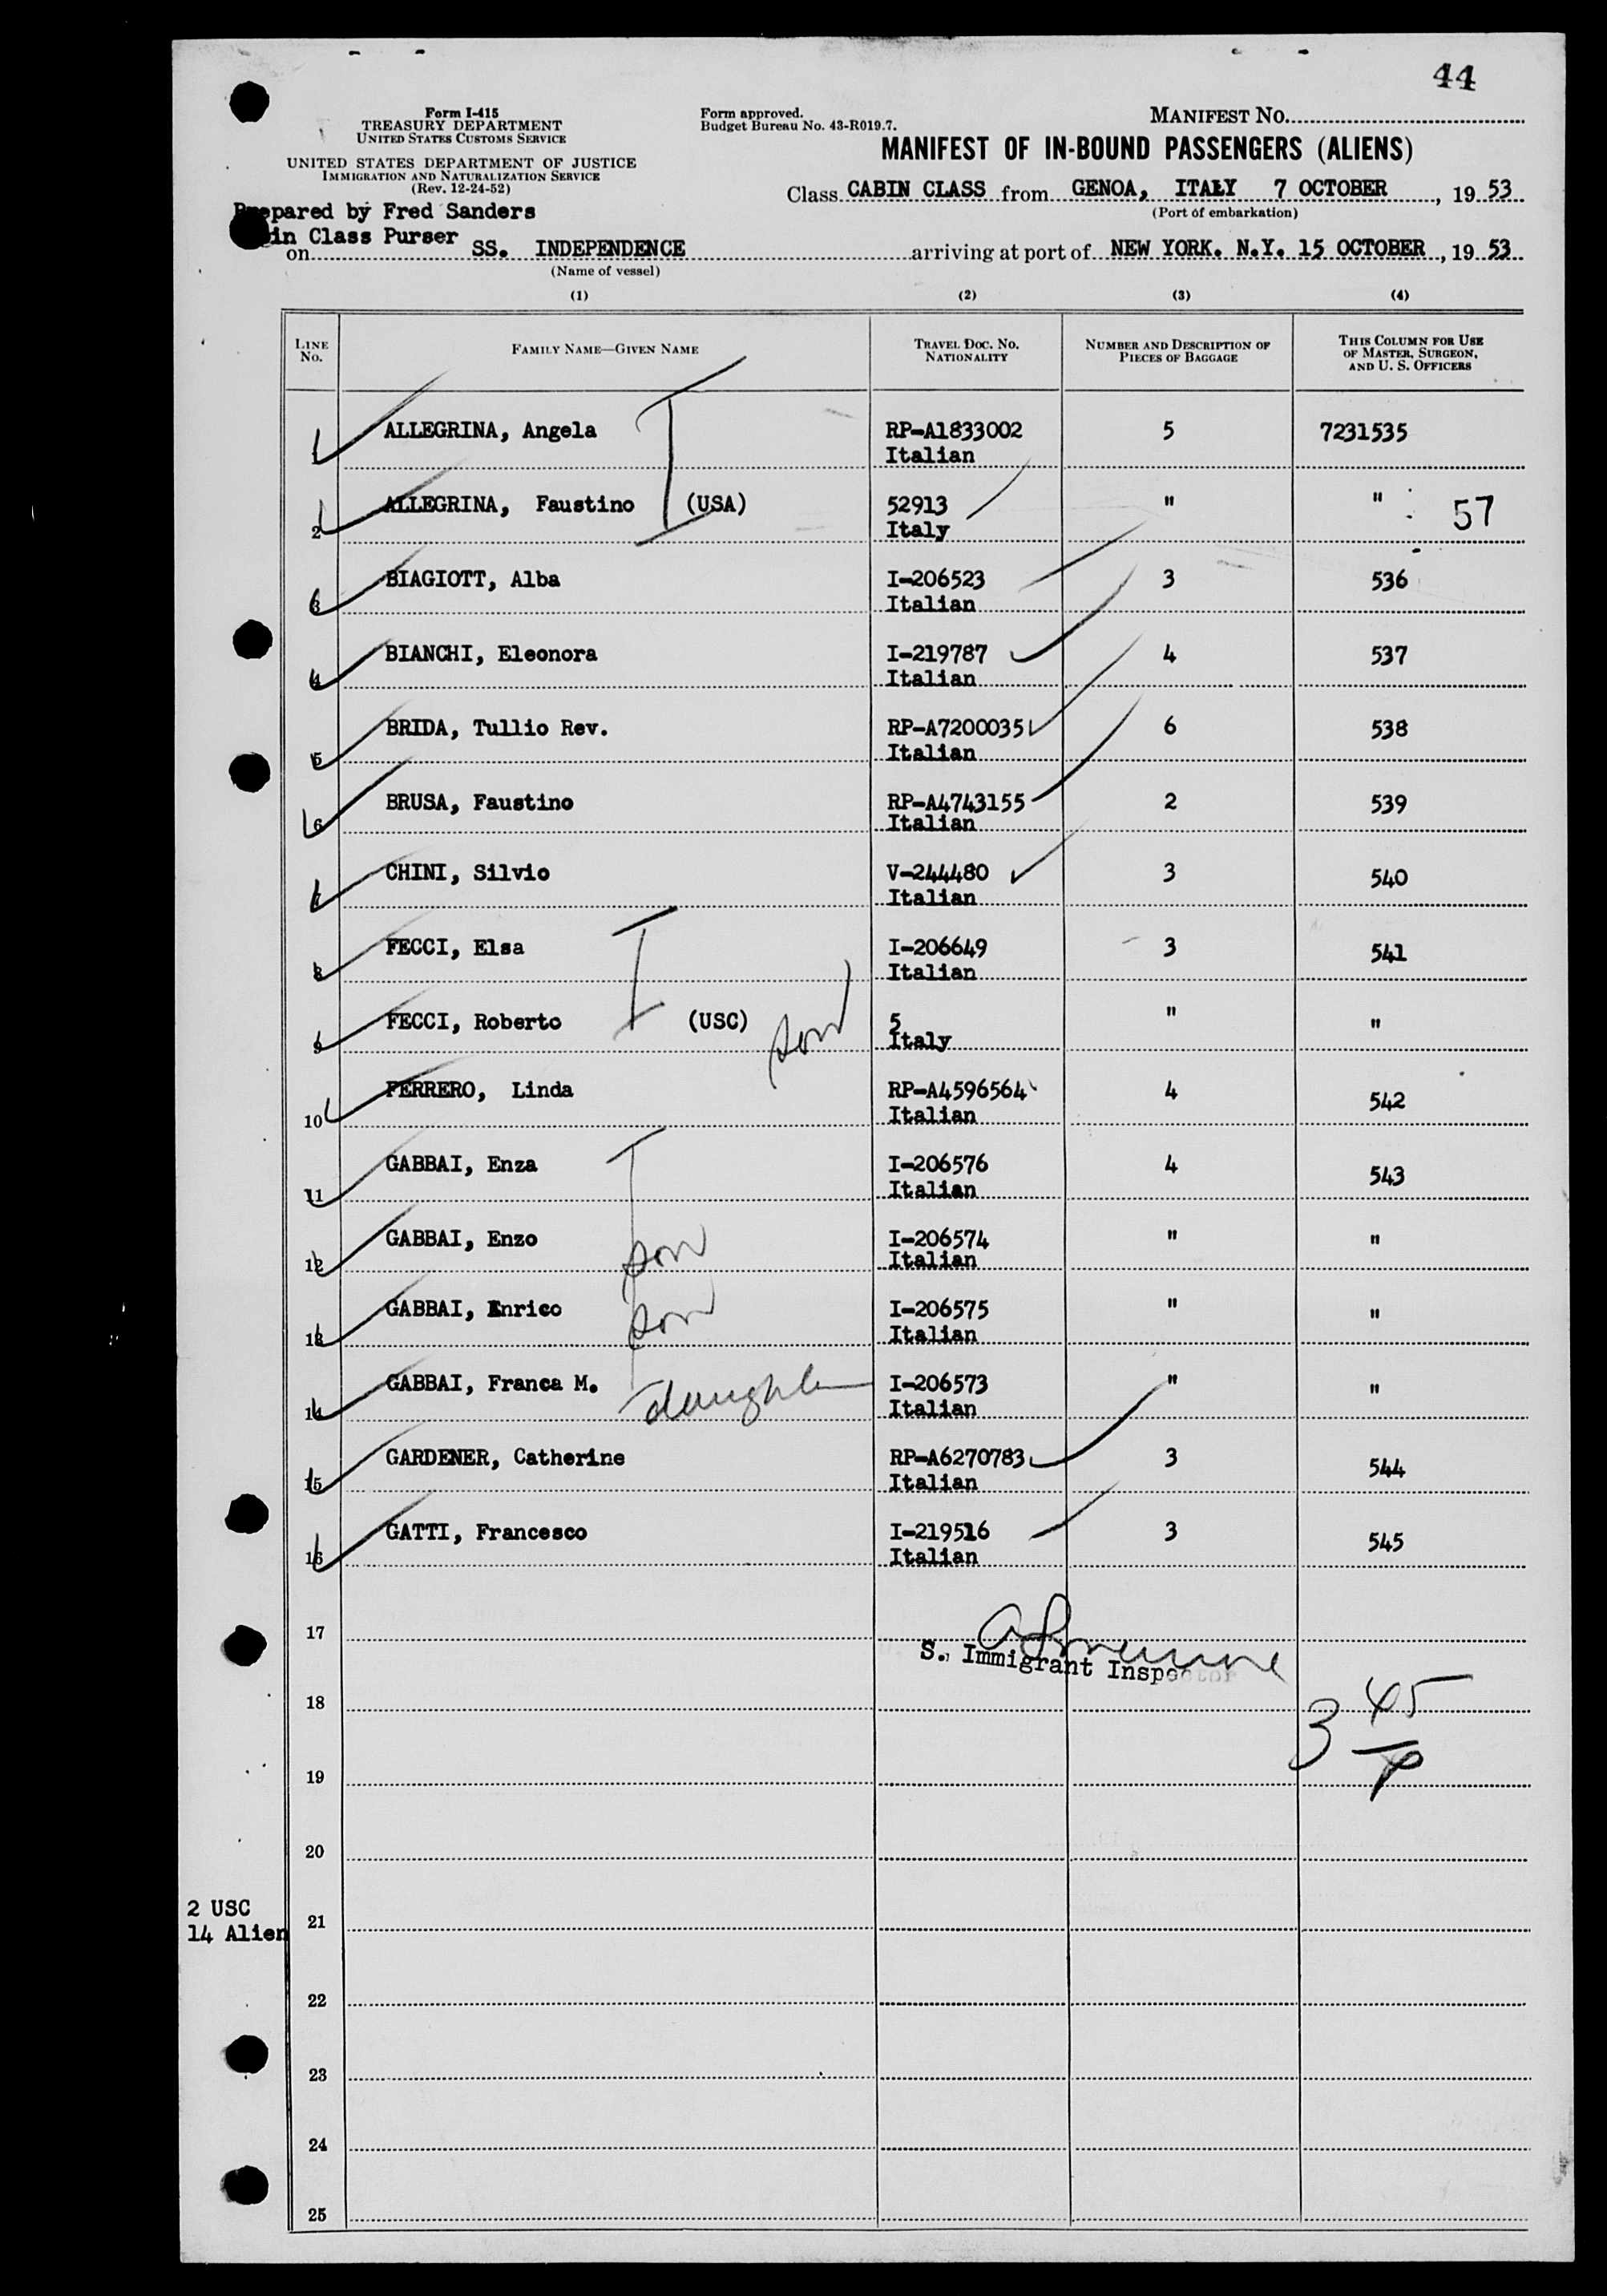 44
Form I-415
TREASURY DEPARTMENT
UNITED STATES CUSTOMS SERVICE
UNITED STATES DEPARTMENT OF JUSTICE
IMMIGRATION AND NATURALIZATION SERVICE
(Rev. 12-24-52)
Form approved.
Budget Bureau No. 43-R019.7.
MANIFEST NO.
MANIFEST OF IN-BOUND PASSENGERS (ALIENS)
Class CABIN CLASS from GENOA, ITALY 7 OCTOBER, 19 53
(Port of embarkation)
Prepared by Fred Sanders
in Class Purser
on SS. INDEPENDENCE arriving at port of NEW YORK. N.Y. 15 OCTOBER, 19 53
(Name of vessel)
(1) (2) (3) (4)
LINE No. FAMILY NAME—GIVEN NAME TRAVEL DOC. NO. NATIONALITY NUMBER AND DESCRIPTION OF PIECES OF BAGGAGE THIS COLUMN FOR USE OF MASTER, SURGEON, AND U. S. OFFICERS
1 ALLEGRINA, Angela RP-A1833002 5 7231535
Italian
2 ALLEGRINA, Faustino (USA) 52913 " " 57
Italy
3 BIAGIOTT, Alba I-206523 3 536
Italian
4 BIANCHI, Eleonora I-219787 4 537
Italian
5 BRIDA, Tullio Rev. RP-A7200035 6 538
Italian
6 BRUSA, Faustino RP-A4743155 2 539
Italian
7 CHINI, Silvio V-244480 3 540
Italian
8 FECCI, Elsa I-206649 3 541
Italian
9 FECCI, Roberto (USC) son 5 " "
Italy
10 FERRERO, Linda RP-A4596564 4 542
Italian
11 GABBAI, Enza I-206576 4 543
Italian
12 GABBAI, Enzo son I-206574 " "
Italian
13 GABBAI, Enrico son I-206575 " "
Italian
14 GABBAI, Franca M. daughter I-206573 " "
Italian
15 GARDENER, Catherine RP-A6270783 3 544
Italian
16 GATTI, Francesco I-219516 3 545
Italian
17
S. Immigrant Inspector
18
3 45
19
20
2 USC
14 Alien
21
22
23
24
25